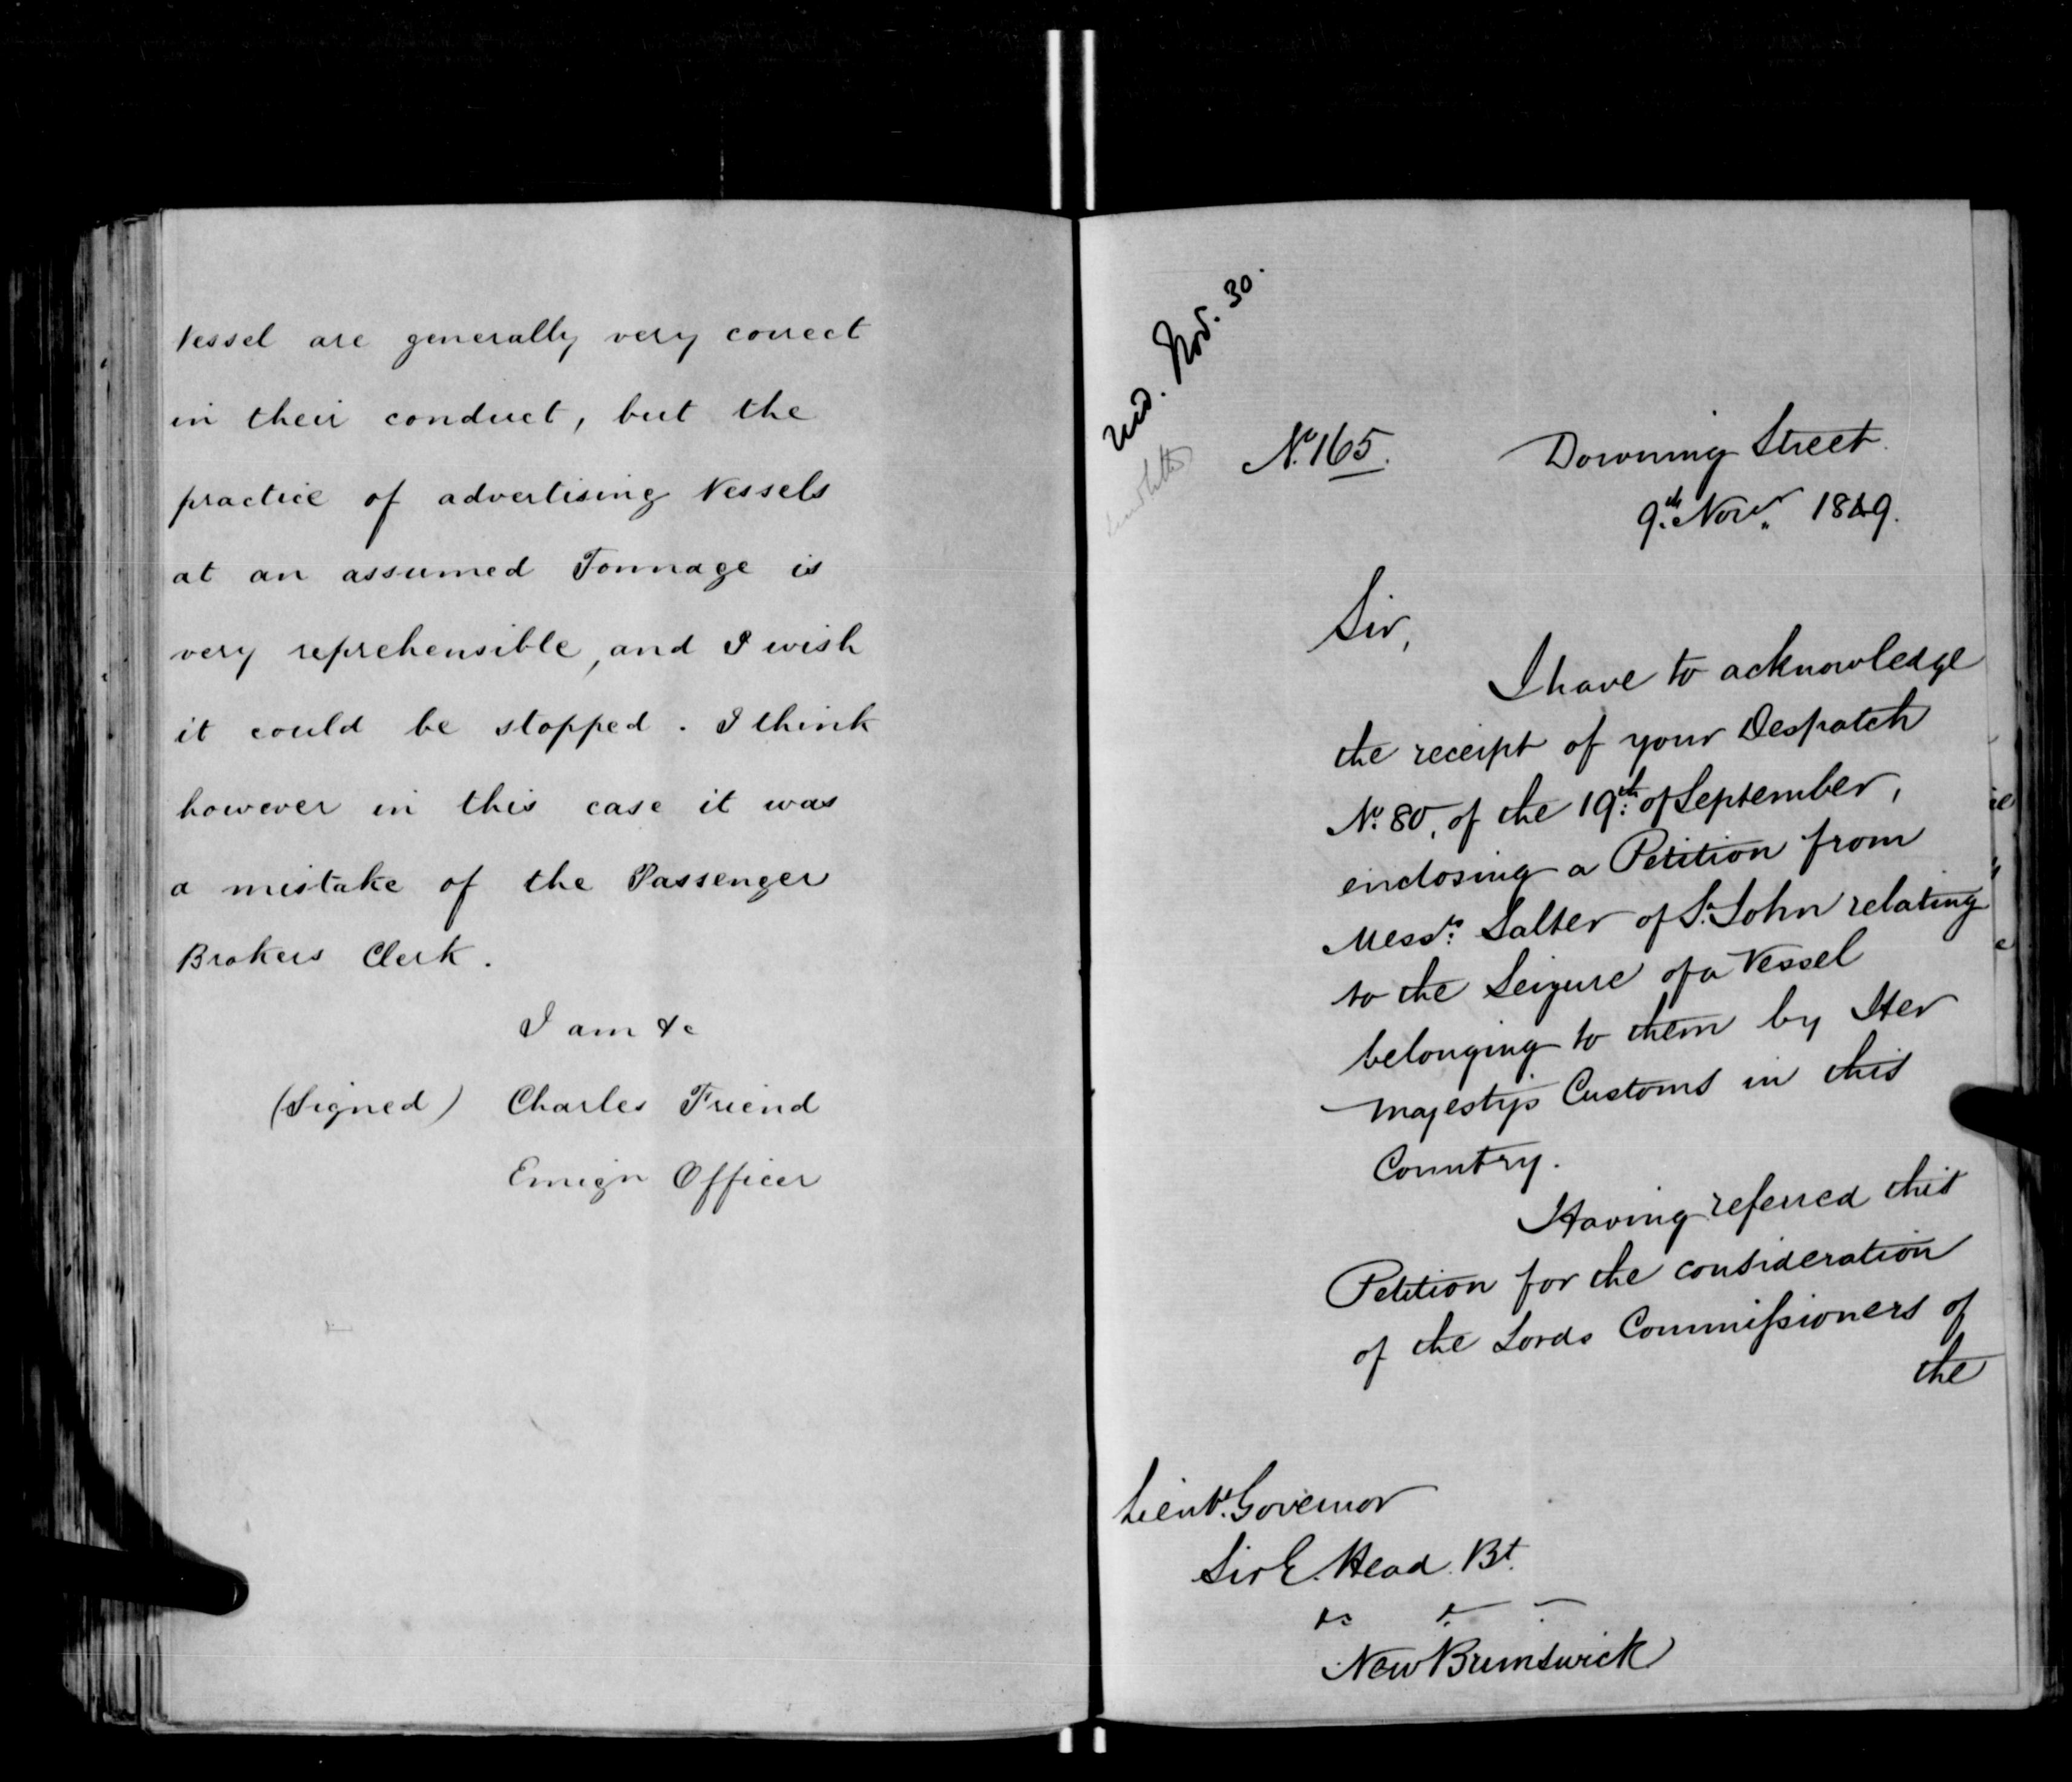 Vessel are generally very correct
in their conduct, but the
practice of advertising Vessels
at an assumed Tonnage is
very reprehensible, and I wish
it could be stopped. I think
however in this case it was
a mistake of the Passenger
Brokers Clerk.
I am &c
(Signed) Charles Friend
Emign Officer
Nov. 30.
No. 165.
Downing Street.
9th. Novr. 1849.
Sir,
I have to acknowledge
the receipt of your Despatch
No. 80, of the 19th: of September,
enclosing a Petition from
Messrs: Salter of St. John relating
to the Seizure of a Vessel
belonging to them by Her
Majesty's Customs in this
Country.
Having referred this
Petition for the consideration
of the Lords Commissioners of
the
Lieut. Governor
Sir E. Head. Bt.
&c &c
New Brunswick